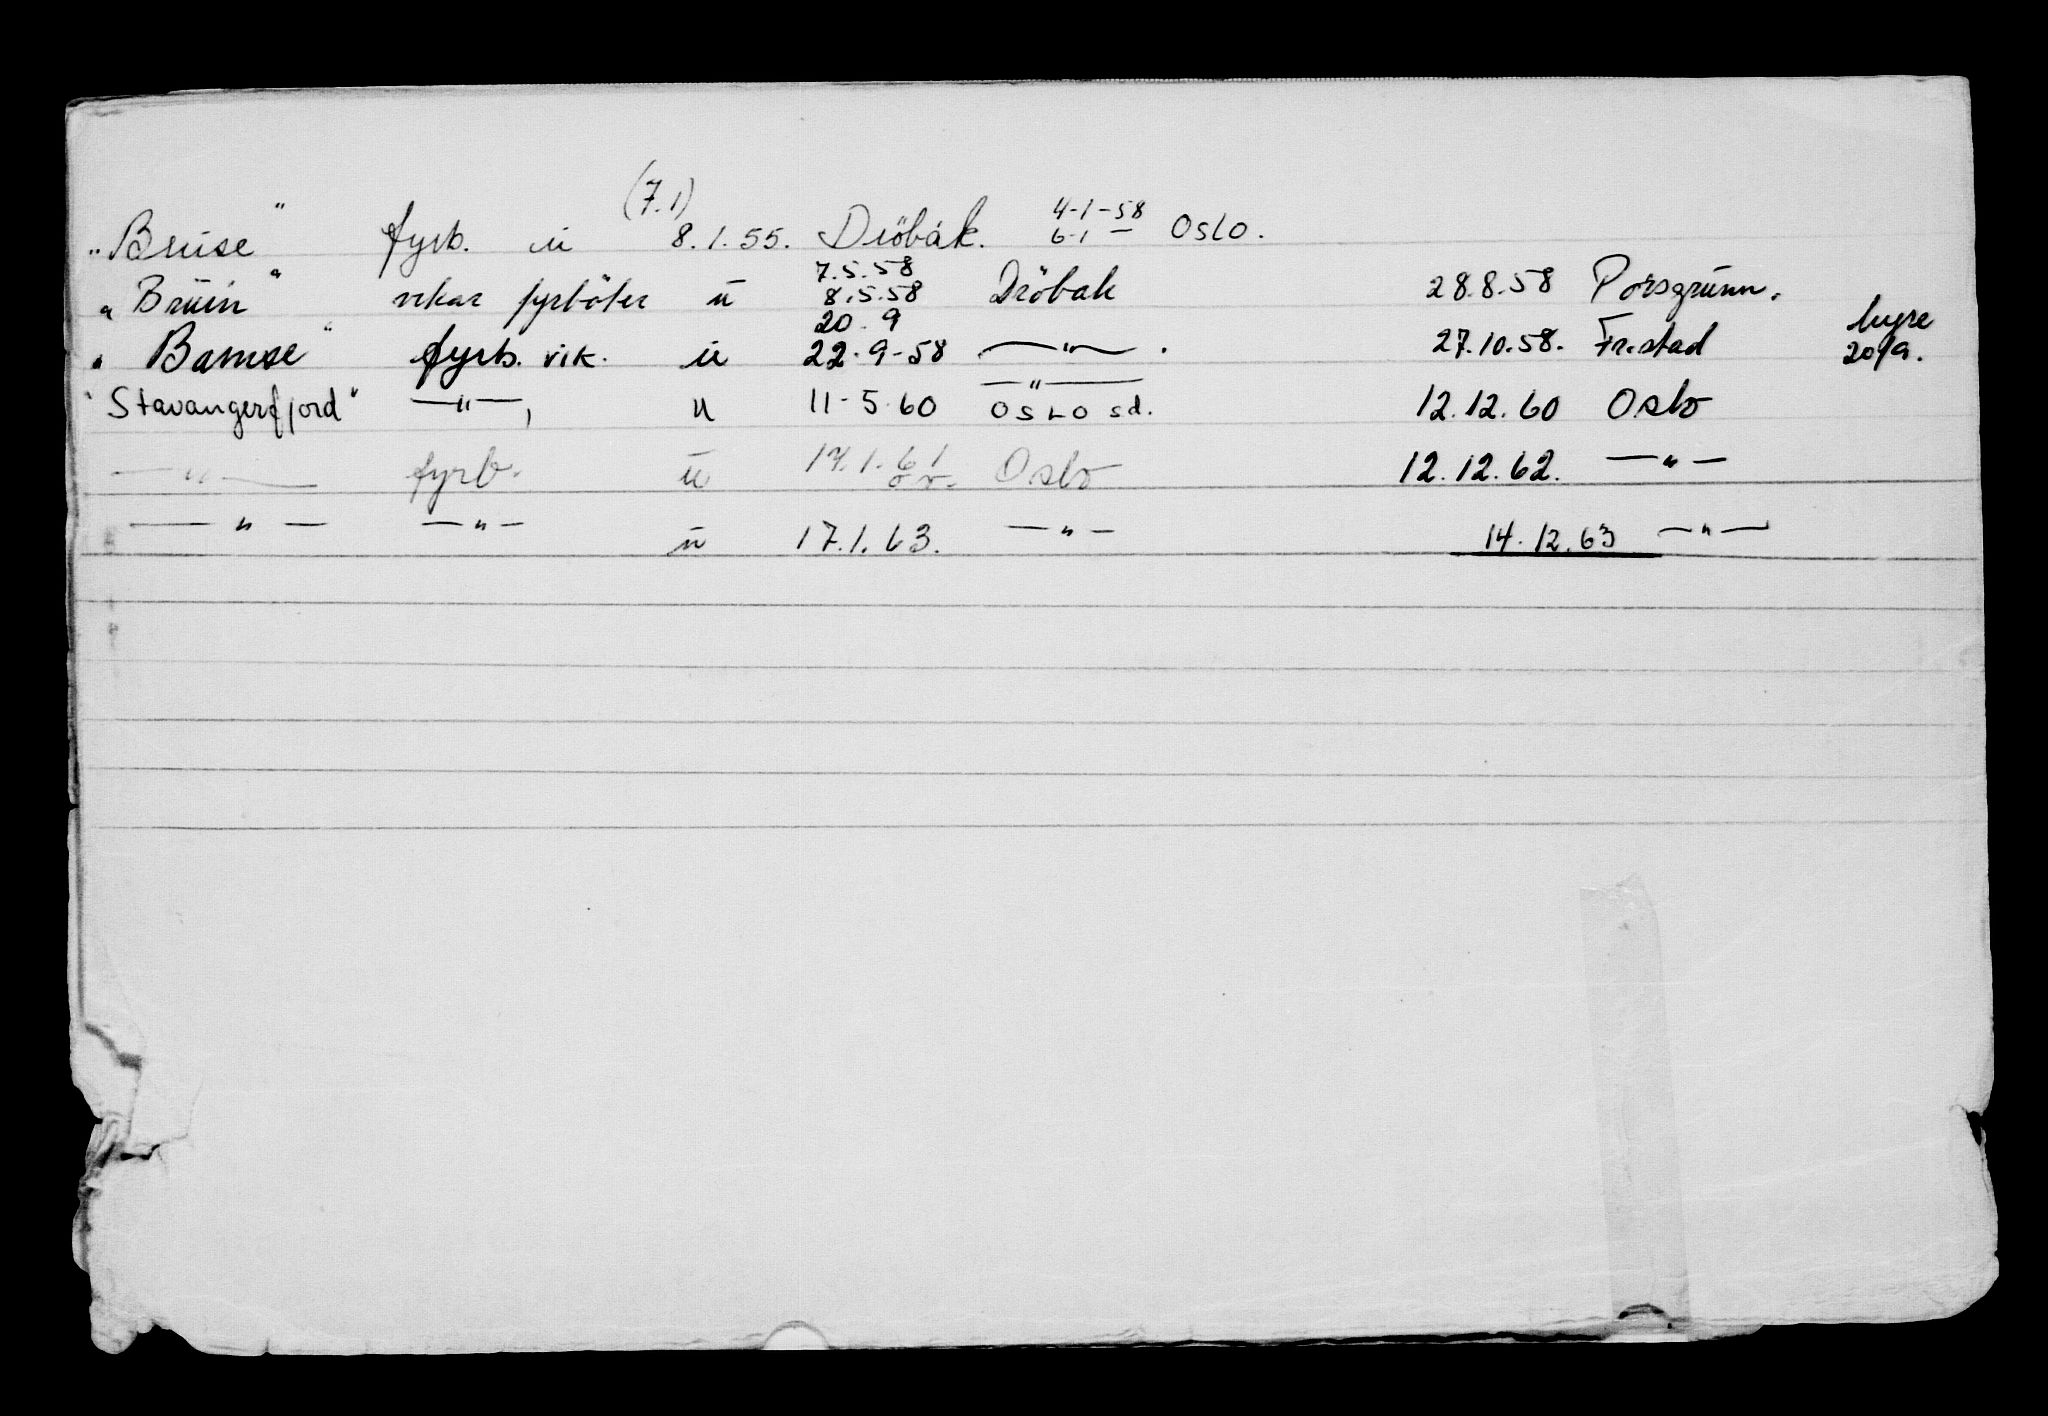 (7.1)
"Bruse" fyrb. u 8.1.55. Dröbak. 4-1-58 6-1 — Oslo.
"Bruin" vikar fyrböter u 7.5.58 8.5.58 Dröbak 28.8.58 Porsgrunn.
"Bamse" fyrb. vik. u 20.9 22.9-58 —"— . 27.10.58. Fr.stad hyre 20/9.
—"—
"Stavangerfjord" —"—, u 11-5.60 OSLO sd. 12.12.60 Oslo
—"— fyrb. u 17.1.61 Oslo 12.12.62. —"—
—"— —"— u 17.1.63. —"— 14.12.63 —"—